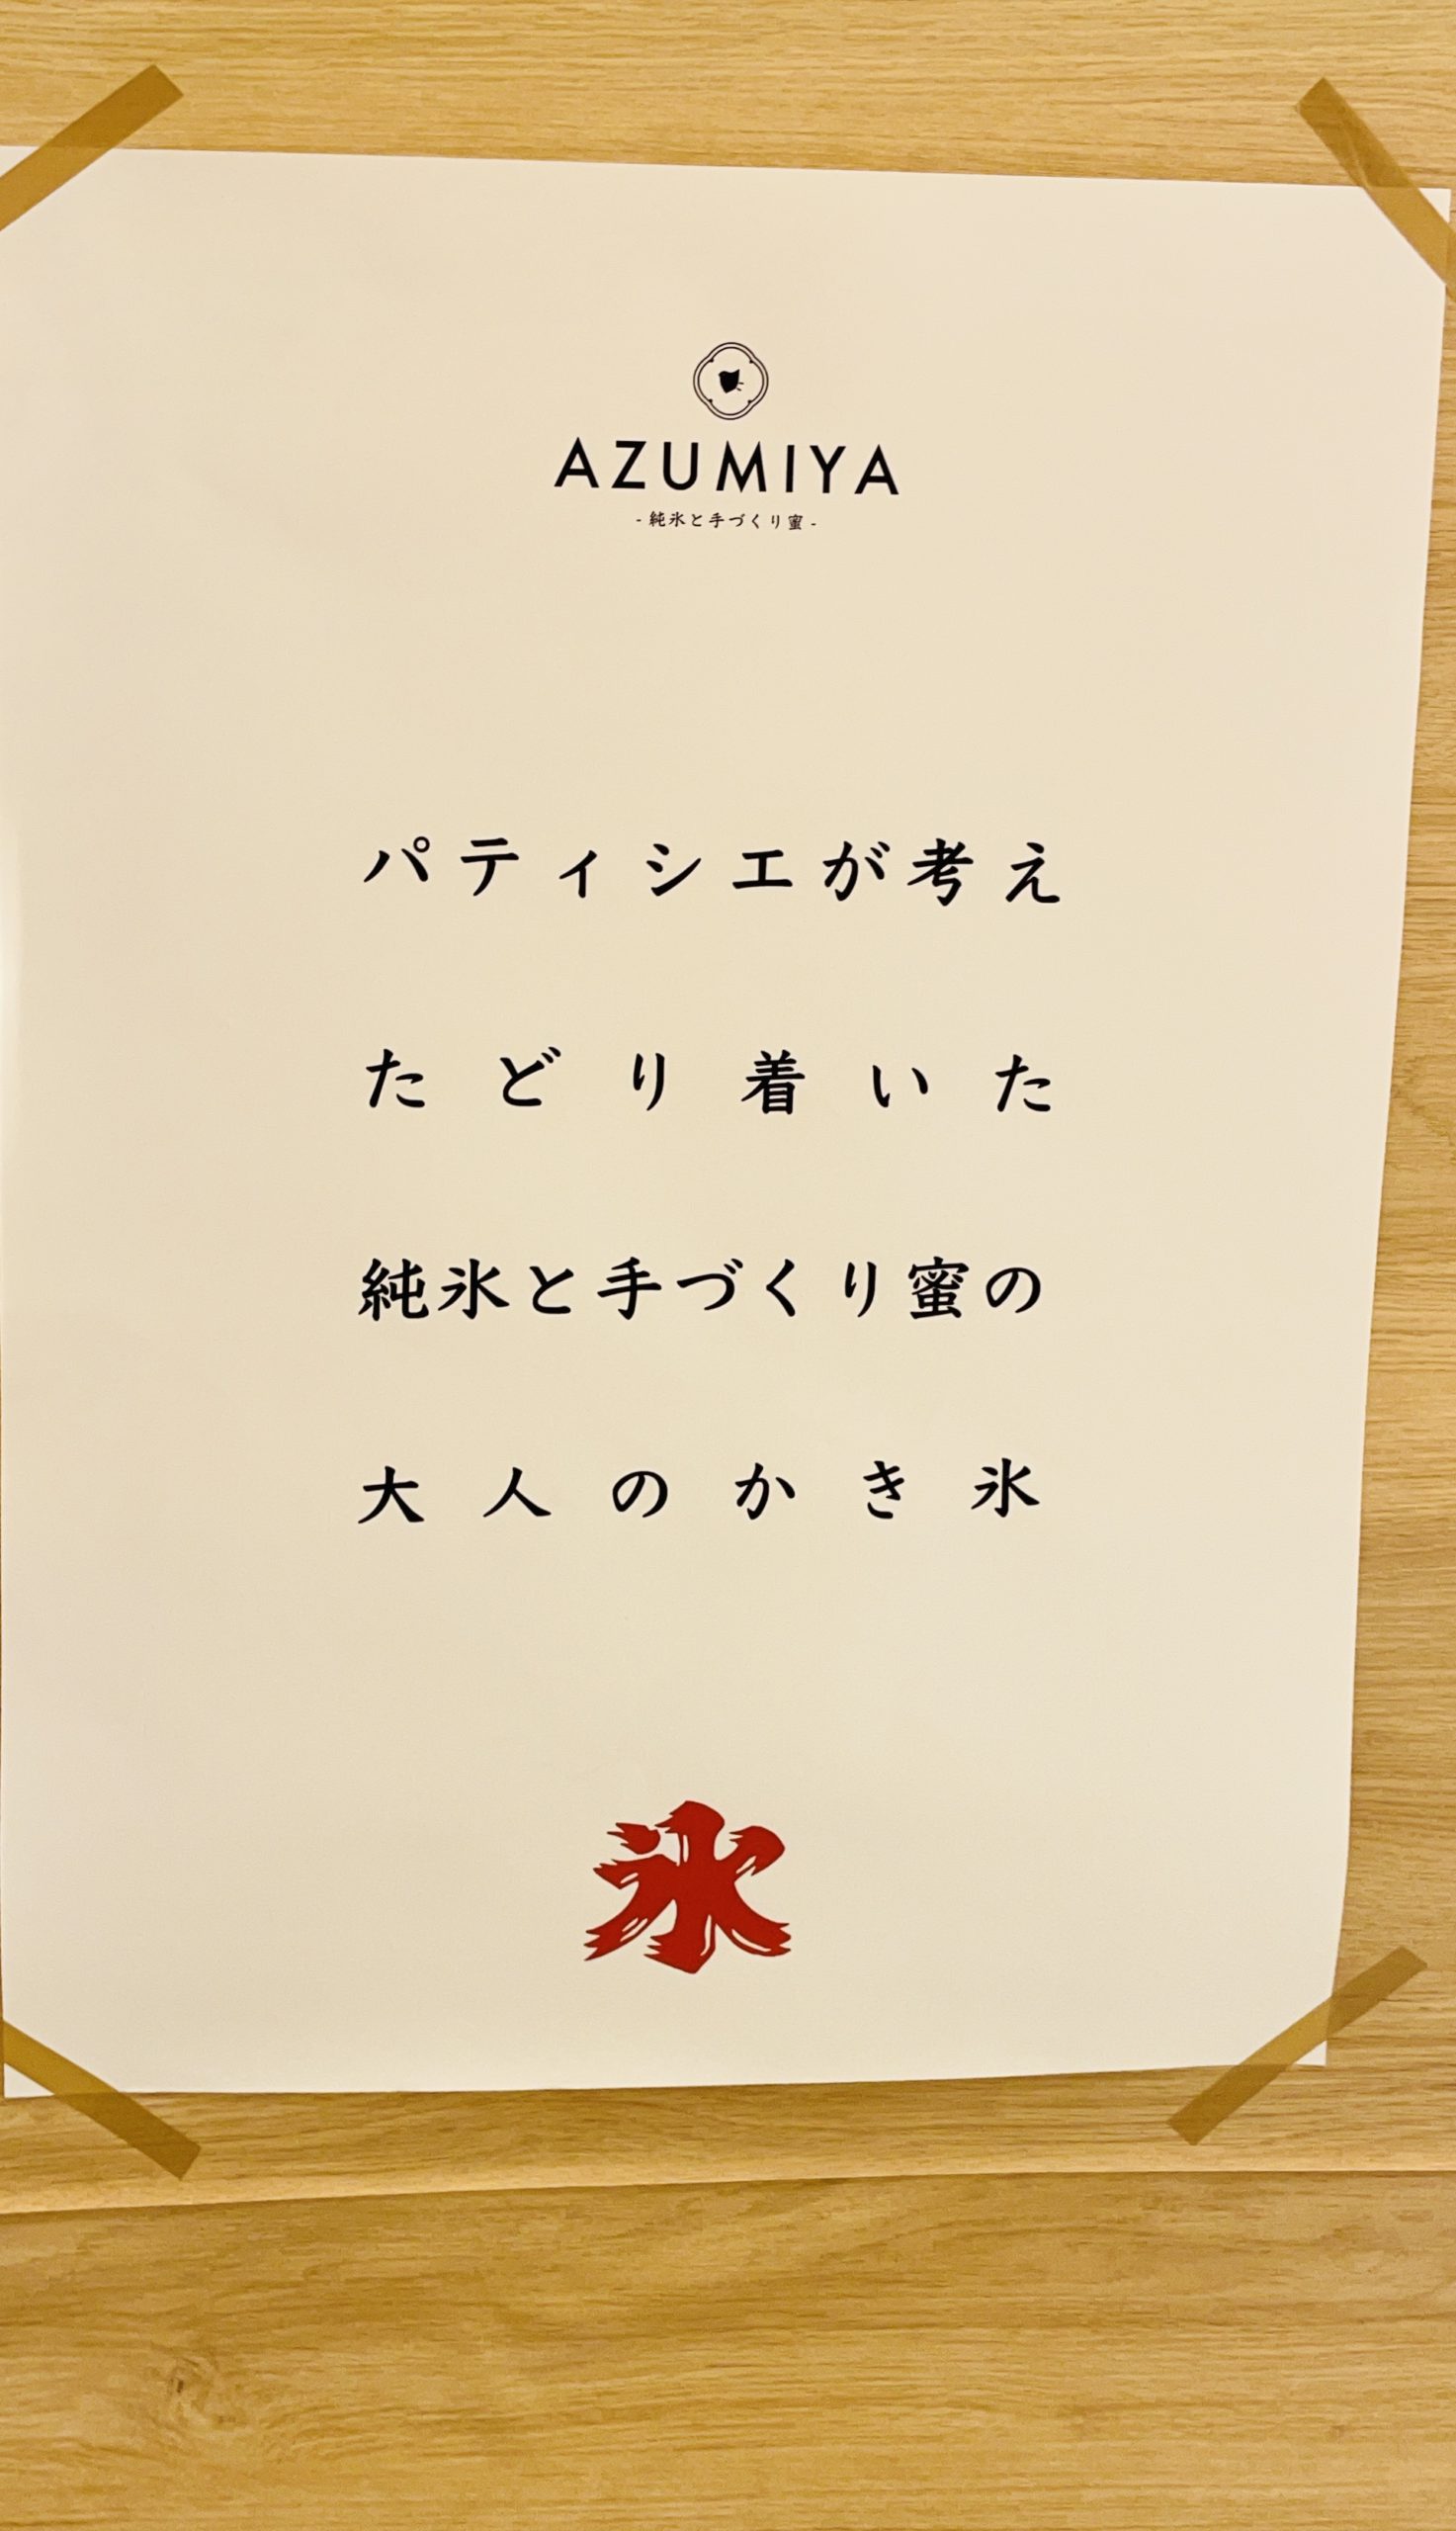 AZUMIYA
- 純氷と手づくり蜜 -
パティシエが考え
たどり着いた
純氷と手づくり蜜の
大人のかき氷
氷